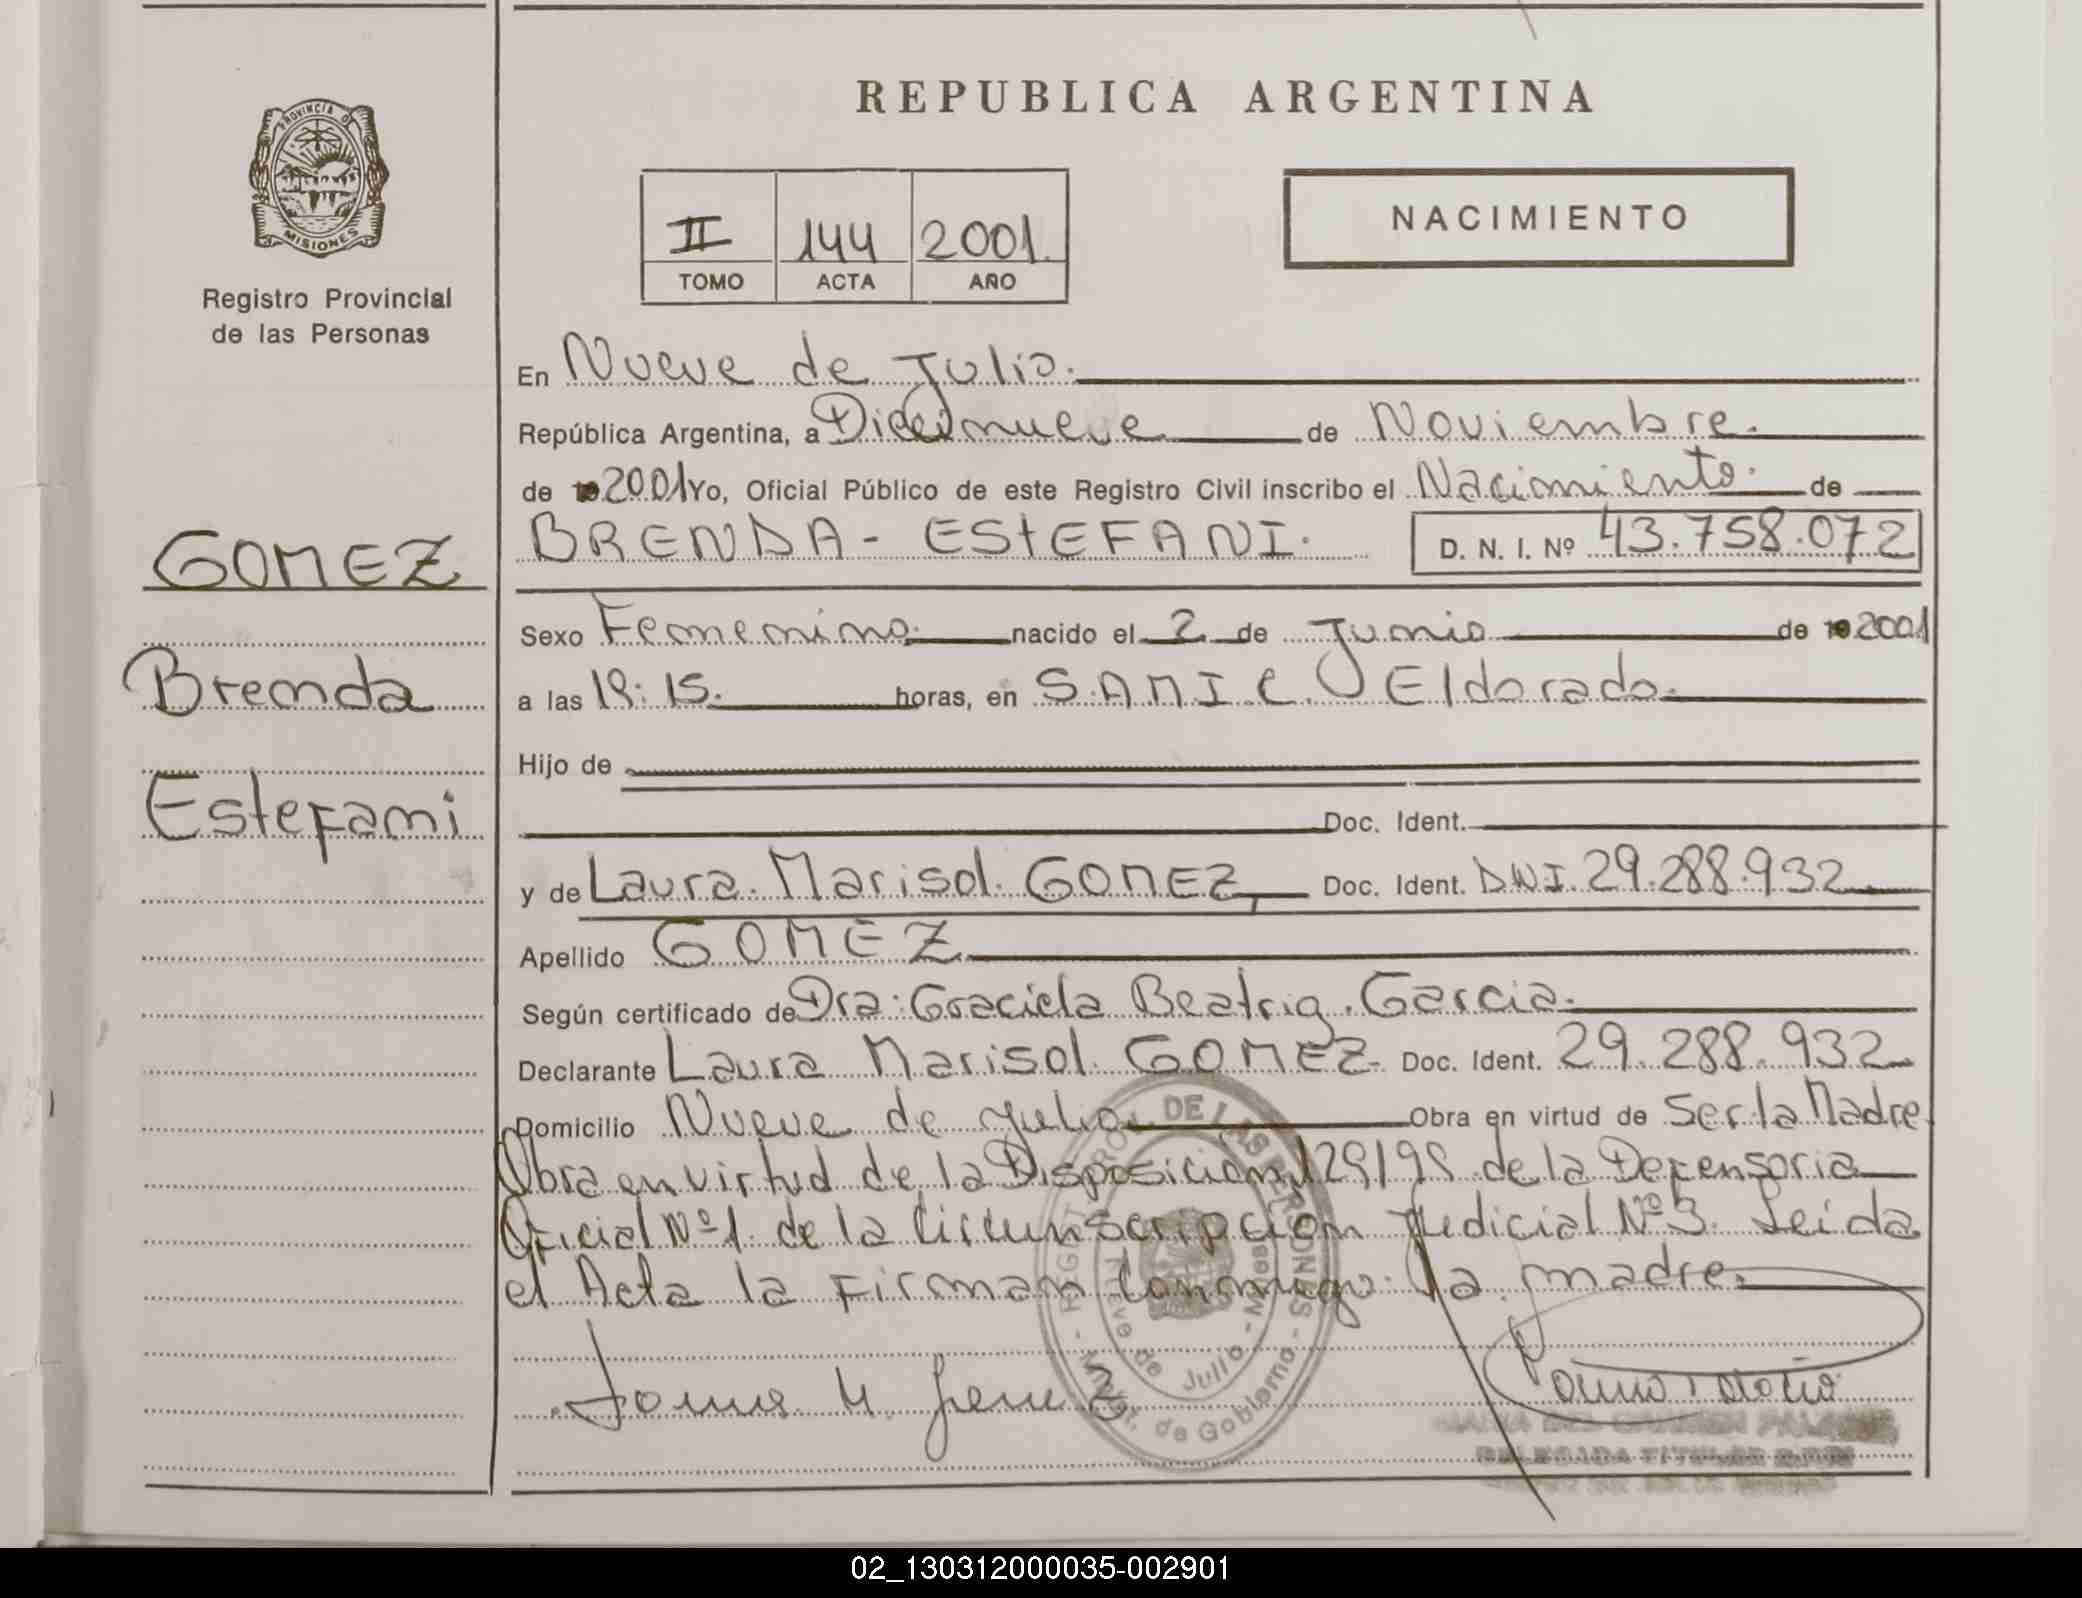 REPUBLICA ARGENTINA
PROVINCIA D MISIONES
Registro Provincial
de las Personas
II 144 2001.
TOMO ACTA AÑO
NACIMIENTO
En Nueve de Julio.
República Argentina, a Diecinueve de Noviembre.
de 19 2001 Yo, Oficial Público de este Registro Civil inscribo el Nacimiento. de
GOMEZ
Brenda
Estefani
BRENDA - ESTEFANI. D. N. I. Nº 43.758.072
Sexo Femenino. nacido el 2 de Junio de 19 2001
a las 19:15. horas, en S.A.M.I.C. Eldorado.
Hijo de
Doc. Ident.
y de Laura Marisol GOMEZ, Doc. Ident. DNI.29.288.932
Apellido GOMEZ
Según certificado de Dra: Graciela Beatriz Garcia.
Declarante Laura Marisol GOMEZ Doc. Ident. 29.288.932
Domicilio Nueve de Julio Obra en virtud de Ser la Madre
Obra en virtud de la Disposicion de la Defensoria
Oficial Nº1 de la Circunscripcion Judicial Nº3. Leida
el Acta la Firman Conmigo: la madre.
DE LAS PERSONAS
Nueve de Julio
Minist. de Gobierno
02_130312000035-002901